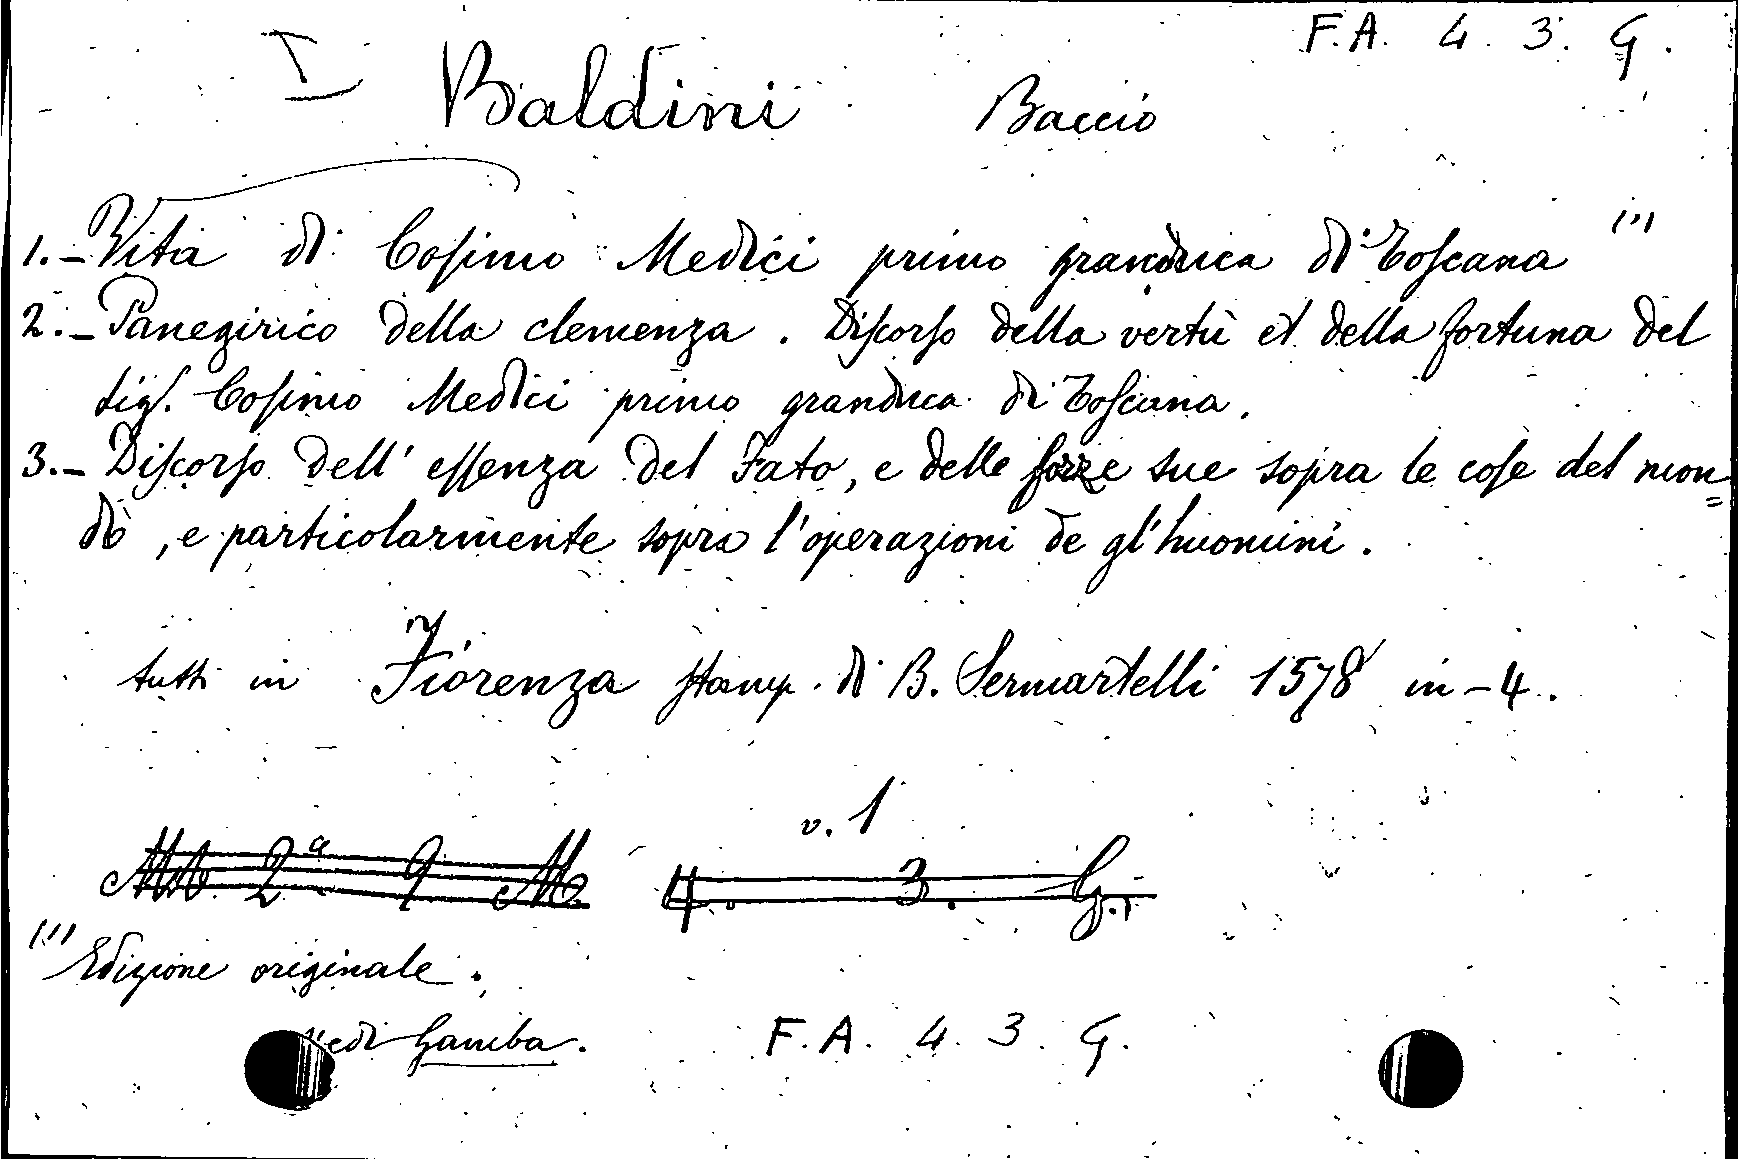 F.A. 4. 3. G.
I Baldini Baccio
1.- Vita di Cosimo Medici primo granduca di Toscana (1)
2.- Panegirico della clemenza. Discorso della vertù et della fortuna del
sig. Cosimo Medici primo granduca di Toscana.
3.- Discorso dell' essenza del Fato, e delle forze sue sopra le cose del mon=
do, e particolarmente sopra l'operazioni de gl'huomini.
tutti in Fiorenza stamp. di B. Sermartelli 1578 in-4.
v. 1
2ª 9 M. 4. 3. G.
(1) Edizione originale.
Vedi Gamba. F.A. 4. 3. G.